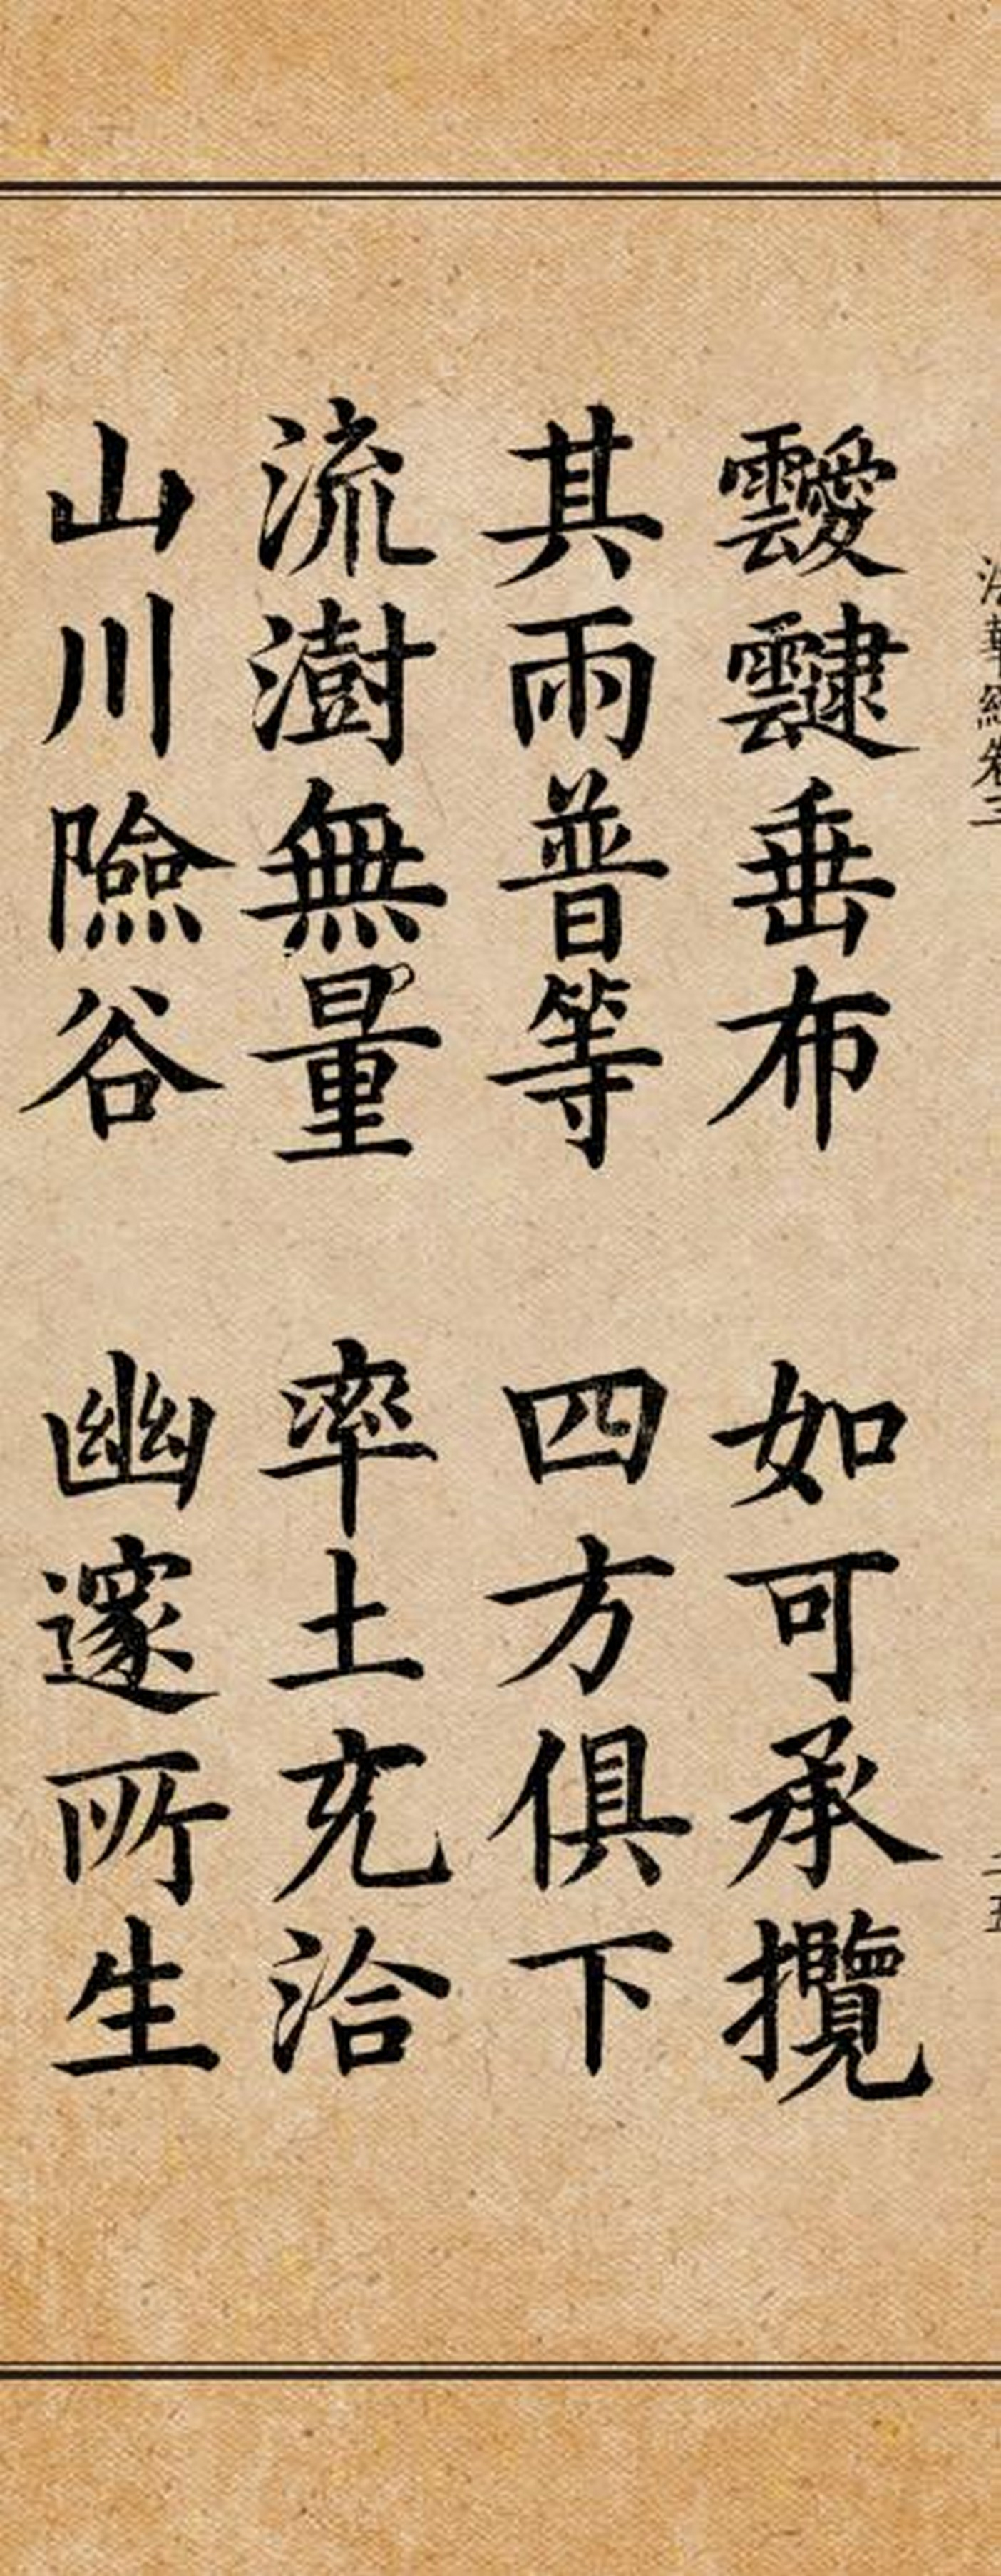 法華經卷三
靉靆垂布 如可承攬
其雨普等 四方俱下
流澍無量 率土充洽
山川險谷 幽邃所生